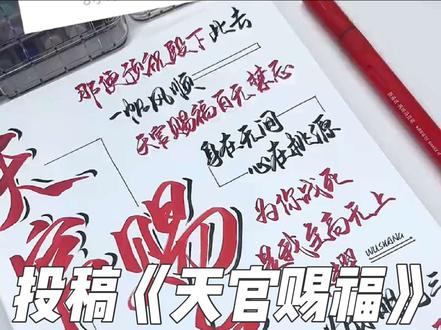 那便预祝殿下此去
一帆风顺
天官赐福百无禁忌
身在无间
心在桃源
为你战死
是我至高无上
WUSHANG
天官赐
投稿《天官赐福》